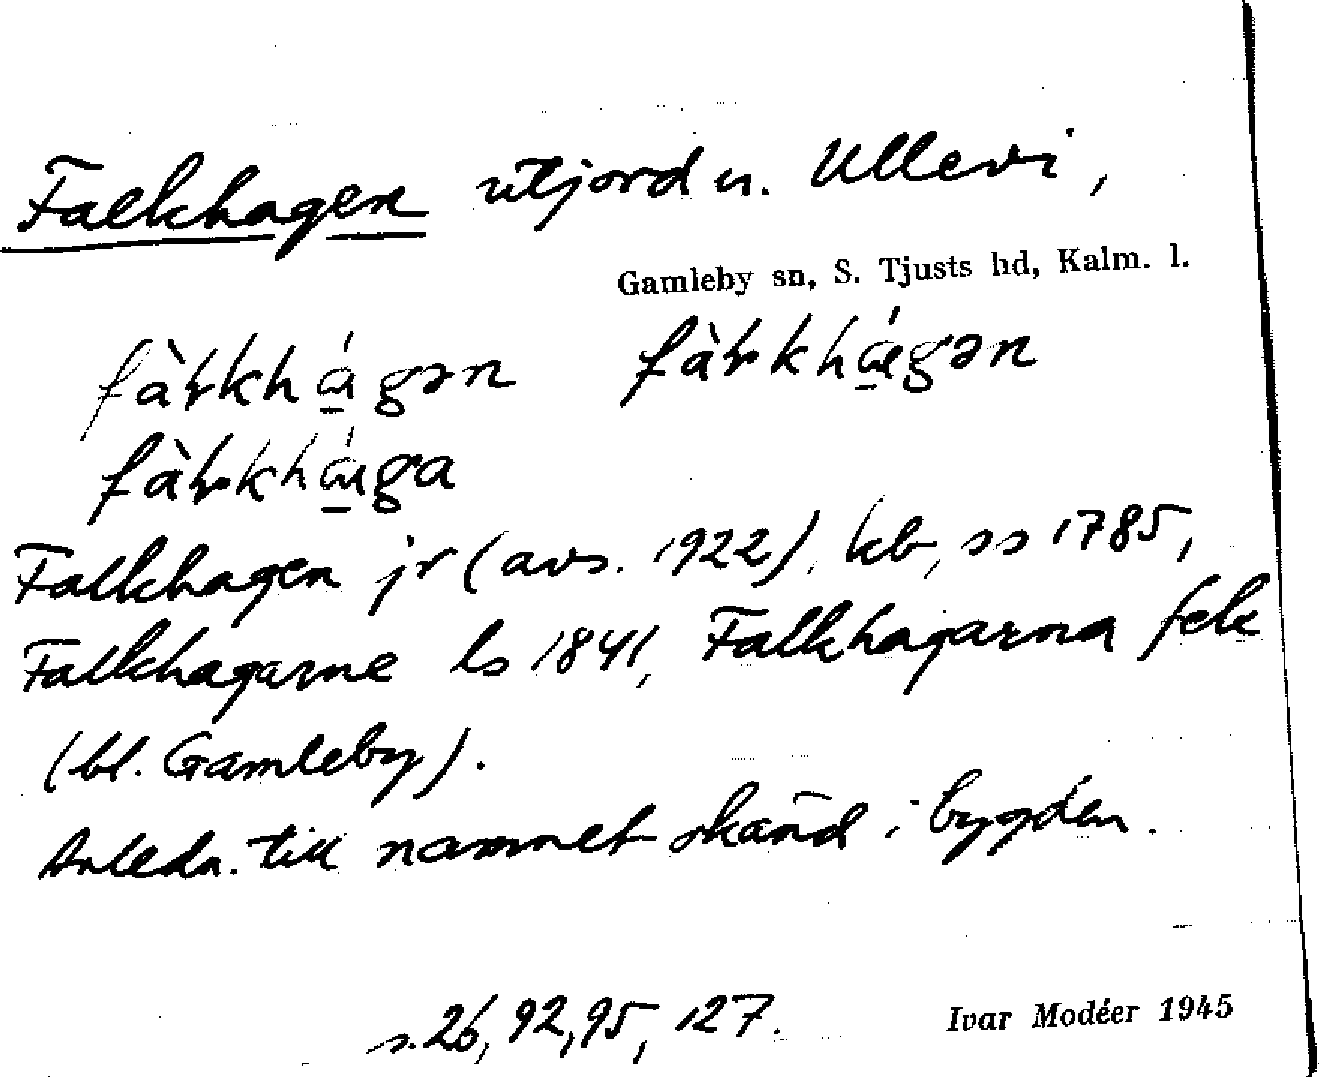 Falkhagen utjord u. Ullevi,
Gamleby sn, S. Tjusts hd, Kalm. l.
Falkhagen jr (avs. 1922), kb, ss 1785,
Falkhagarne ls 1841, Falkhagarna fek
(bl. Gamleby).
Anledn. till namnet okänd i bygden.
s. 26, 92, 95, 127.
Ivar Modéer 1945